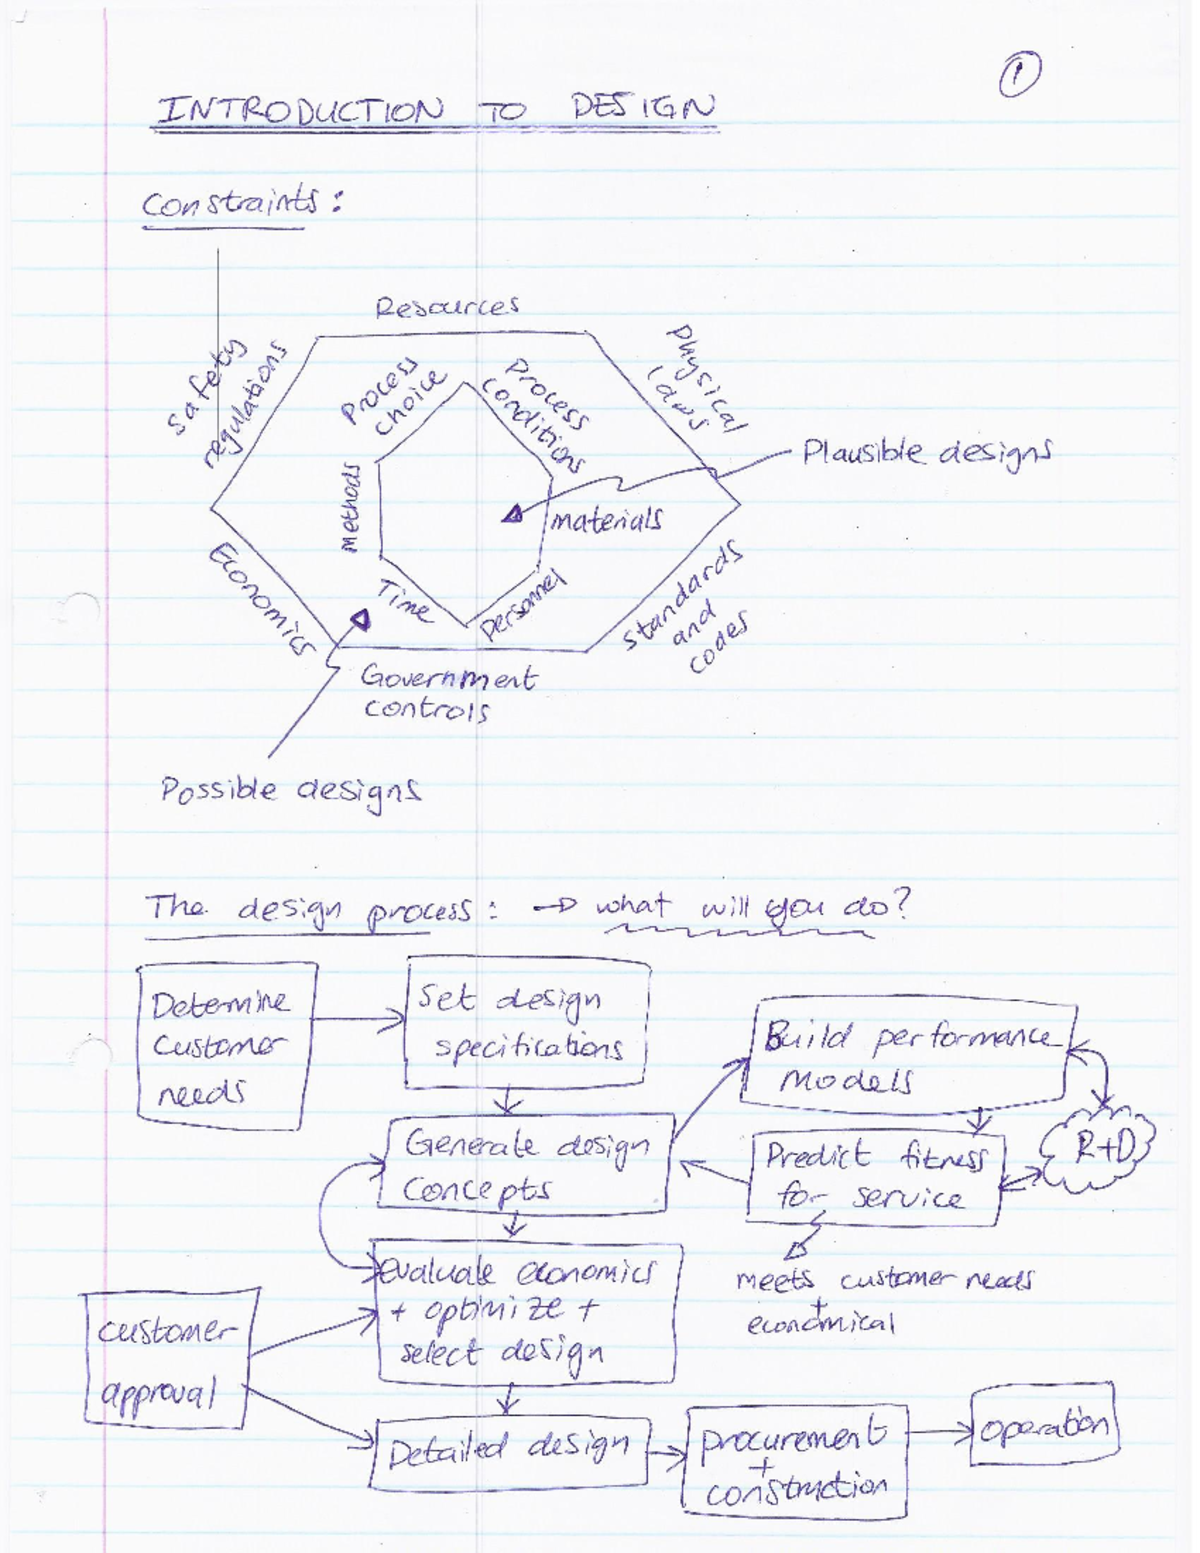 1
INTRODUCTION TO DESIGN
Constraints:
Resources
Safety
regulations
Physical
laws
Process
choice
Process
conditions
Plausible designs
Methods
materials
Economics
Time
Personnel
Standards
and
codes
Government
controls
Possible designs
The design process: → what will you do?
Determine
customer
needs
Set design
specifications
Build performance
models
Generate design
concepts
Predict fitness
for service
R+D
evaluate economics
+ optimize +
select design
meets customer needs
+
economical
customer
approval
Detailed design
procurement
+
construction
operation